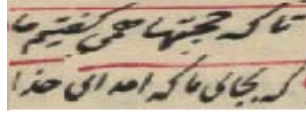 تا که حجتها همی گفتیم ما
که بجای ما که امد ای خدا